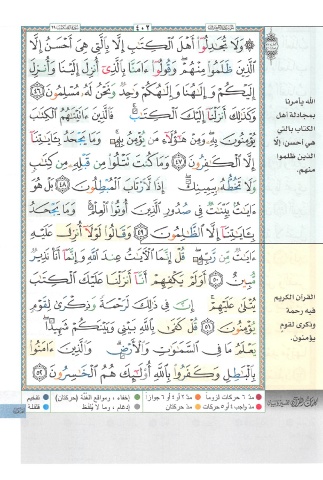 ٤٠٢
۞ وَلَا تُجَٰدِلُوٓا۟ أَهْلَ ٱلْكِتَٰبِ إِلَّا بِٱلَّتِى هِىَ أَحْسَنُ إِلَّا
ٱلَّذِينَ ظَلَمُوا۟ مِنْهُمْ ۖ وَقُولُوٓا۟ ءَامَنَّا بِٱلَّذِىٓ أُنزِلَ إِلَيْنَا وَأُنزِلَ
إِلَيْكُمْ وَإِلَٰهُنَا وَإِلَٰهُكُمْ وَٰحِدٌ وَنَحْنُ لَهُۥ مُسْلِمُونَ ٤٦
وَكَذَٰلِكَ أَنزَلْنَآ إِلَيْكَ ٱلْكِتَٰبَ ۚ فَٱلَّذِينَ ءَاتَيْنَٰهُمُ ٱلْكِتَٰبَ
يُؤْمِنُونَ بِهِۦ ۖ وَمِنْ هَٰٓؤُلَآءِ مَن يُؤْمِنُ بِهِۦ ۚ وَمَا يَجْحَدُ بِـَٔايَٰتِنَآ
إِلَّا ٱلْكَٰفِرُونَ ٤٧ وَمَا كُنتَ تَتْلُوا۟ مِن قَبْلِهِۦ مِن كِتَٰبٍ
وَلَا تَخُطُّهُۥ بِيَمِينِكَ ۖ إِذًا لَّٱرْتَابَ ٱلْمُبْطِلُونَ ٤٨ بَلْ هُوَ
ءَايَٰتٌۢ بَيِّنَٰتٌ فِى صُدُورِ ٱلَّذِينَ أُوتُوا۟ ٱلْعِلْمَ ۚ وَمَا يَجْحَدُ
بِـَٔايَٰتِنَآ إِلَّا ٱلظَّٰلِمُونَ ٤٩ وَقَالُوا۟ لَوْلَآ أُنزِلَ عَلَيْهِ
ءَايَٰتٌ مِّن رَّبِّهِۦ ۖ قُلْ إِنَّمَا ٱلْءَايَٰتُ عِندَ ٱللَّهِ وَإِنَّمَآ أَنَا۠ نَذِيرٌ
مُّبِينٌ ٥٠ أَوَلَمْ يَكْفِهِمْ أَنَّآ أَنزَلْنَا عَلَيْكَ ٱلْكِتَٰبَ
يُتْلَىٰ عَلَيْهِمْ ۚ إِنَّ فِى ذَٰلِكَ لَرَحْمَةً وَذِكْرَىٰ لِقَوْمٍ
يُؤْمِنُونَ ٥١ قُلْ كَفَىٰ بِٱللَّهِ بَيْنِى وَبَيْنَكُمْ شَهِيدًا ۖ
يَعْلَمُ مَا فِى ٱلسَّمَٰوَٰتِ وَٱلْأَرْضِ ۗ وَٱلَّذِينَ ءَامَنُوا۟
بِٱلْبَٰطِلِ وَكَفَرُوا۟ بِٱللَّهِ أُو۟لَٰٓئِكَ هُمُ ٱلْخَٰسِرُونَ ٥٢
الله يأمرنا
بمجادلة أهل
الكتاب بالتي
هي أحسن، إلّا
الذين ظلموا
منهم.
القرآن الكريم
فيه رحمة
وذكرى لقوم
يؤمنون.
مدّ ٦ حركات لزوماً مدّ ٢ أو ٤ أو ٦ جوازاً إخفاء، ومواقع الغنّة (حركتان) تفخيم
مدّ واجب ٤ أو ٥ حركات مدّ حركتان إدغام، وما لا يُلفظ قلقلة